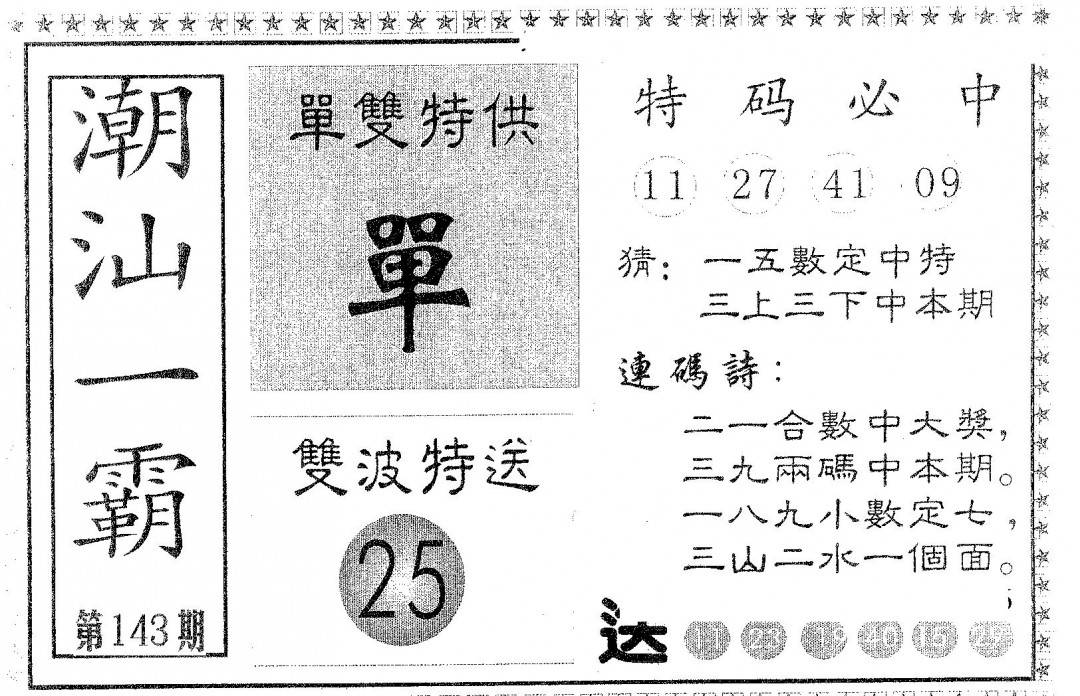 潮汕一霸
第143期
單雙特供
單
雙波特送
25
特码必中
11 27 41 09
猜：一五數定中特
三上三下中本期
連碼詩：
二一合數中大獎，
三九兩碼中本期。
一八九小數定七，
三山二水一個面。
送 11 23 19 40 15